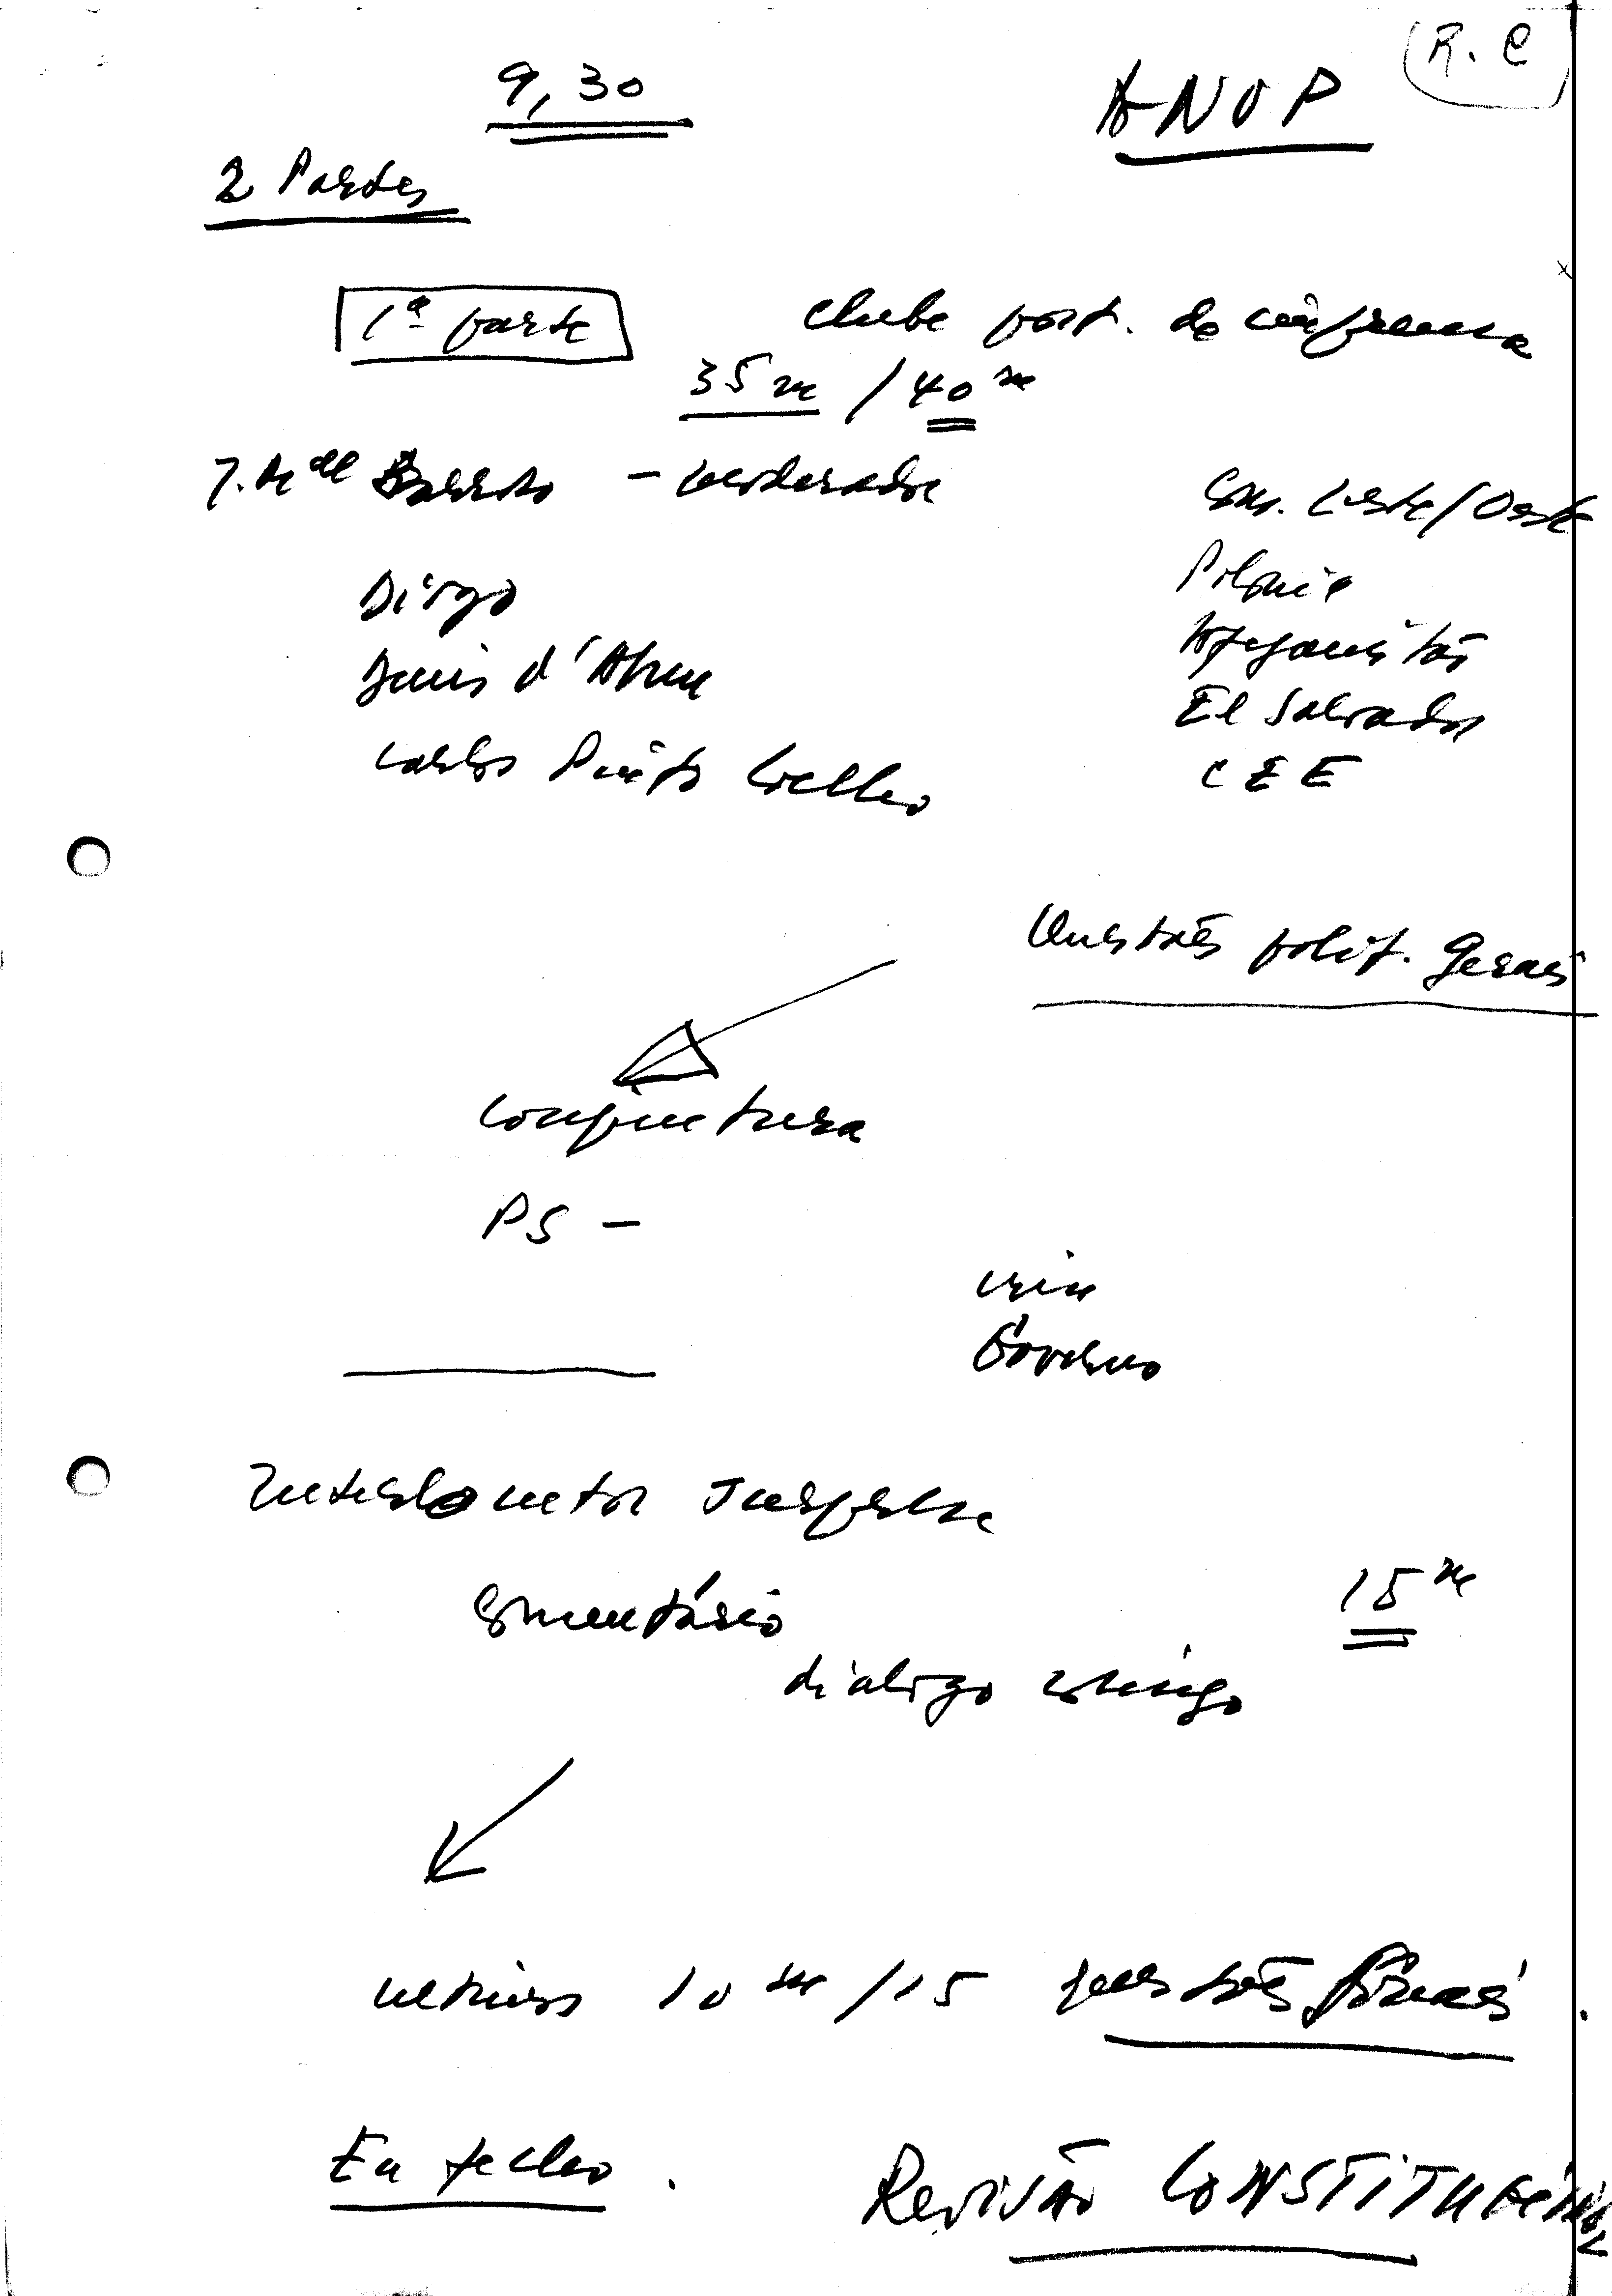 R. C
9,30
ANOP
2 Partes
1ª parte
Clube port. de imprensa
35 m / 40 m
J. M. el Barroso - moderador
Com. Leste/Oeste
Diogo
Polónia
Dinis d'Abreu
Afeganistão
El Salvador
Carlos Pinto Coelho
CEE
Questões polit. gerais
Conjuntura
PS -
crise
Governo
Interlocutor surpresa
Comentário
15 m
dialogo comigo
ultimos 10 m /15 questões finais.
Eu fecho.
Revisão CONSTITUCIONAL